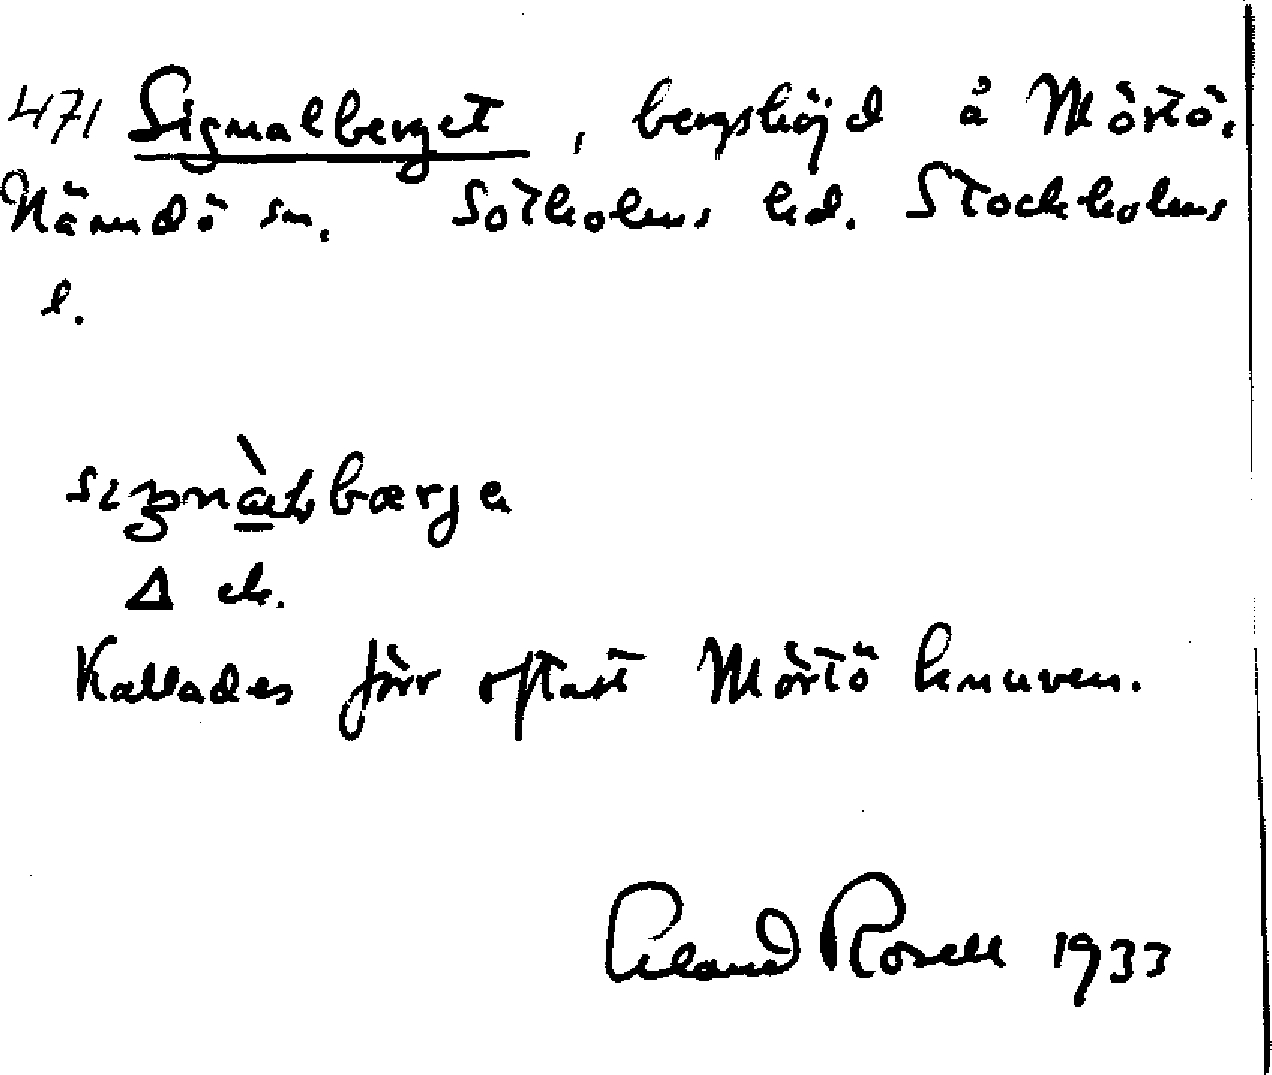 471 Signalberget, bergshöjd å Mörtö.
Nämdö sn. Sotholms hd. Stockholms
l.
Δ ek.
Kallades förr oftast Mörtö knuven.
Erland Rosell 1933